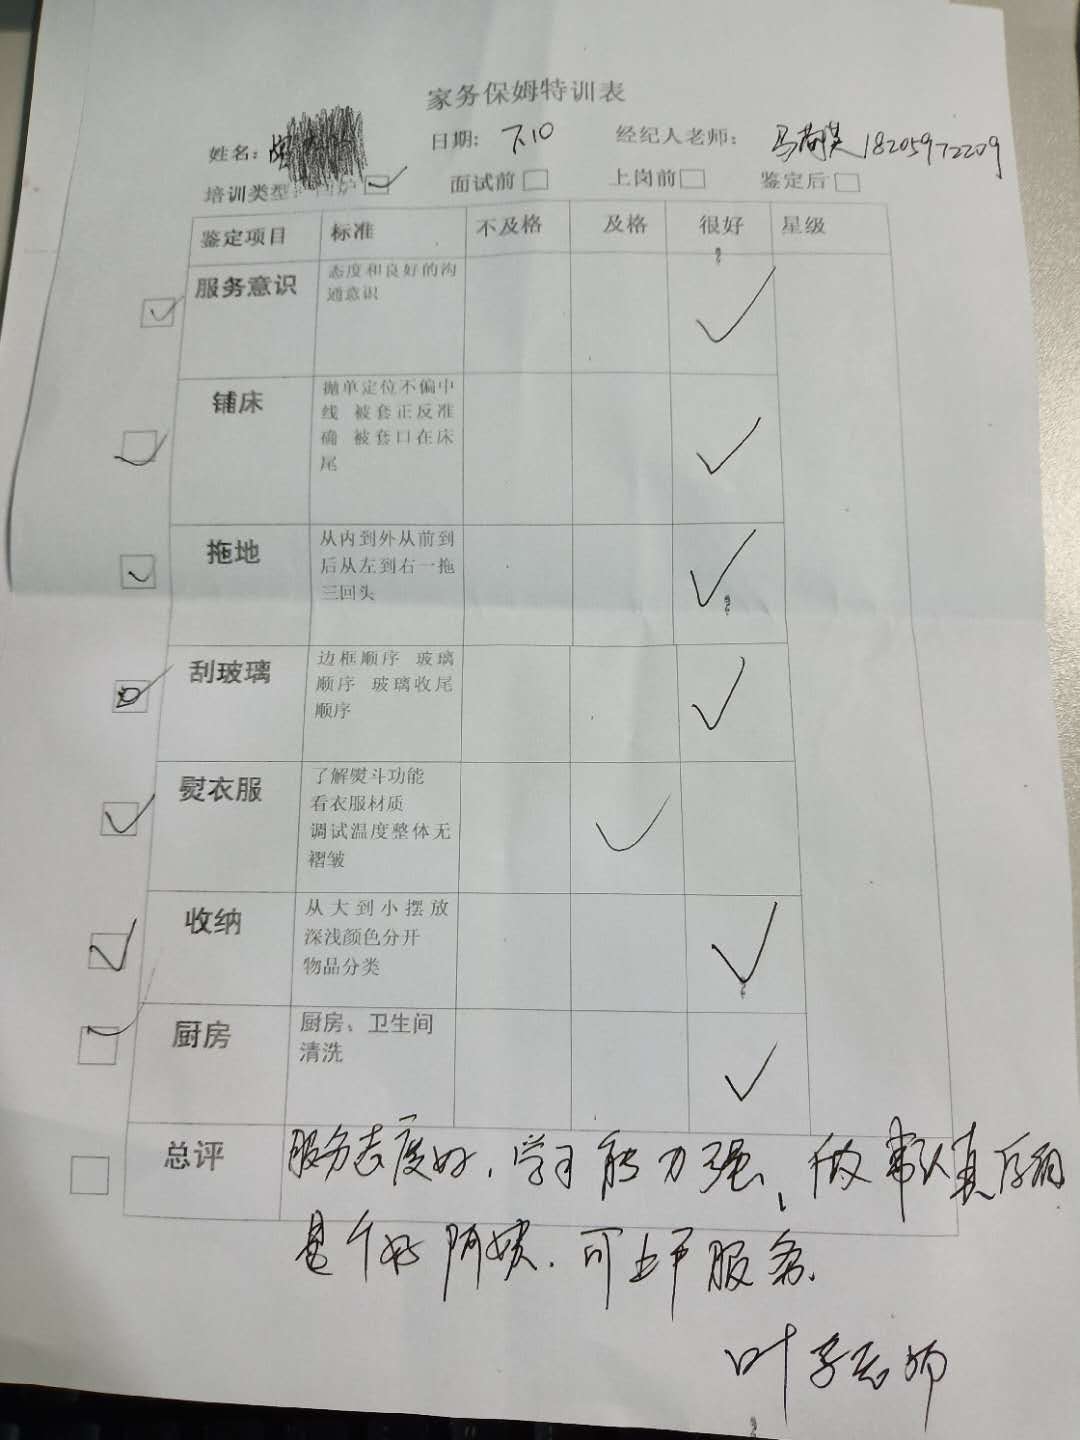 家务保姆特训表
姓名： 日期： 7.10 经纪人老师： 18205972209
培训类型： 面试前 上岗前 鉴定后
鉴定项目 标准 不及格 及格 很好 星级
服务意识 态度和良好的沟
通意识
铺床 抛单定位不偏中
线 被套正反准
确 被套口在床
尾
拖地 从内到外从前到
后从左到右一拖
三回头
刮玻璃 边框顺序 玻璃
顺序 玻璃收尾
顺序
熨衣服 了解熨斗功能
看衣服材质
调试温度整体无
褶皱
收纳 从大到小摆放
深浅颜色分开
物品分类
厨房 厨房、卫生间
清洗
总评 服务态度好，学习能力强、做事认真仔细
是个好阿姨.可上户服务.
叶子老师